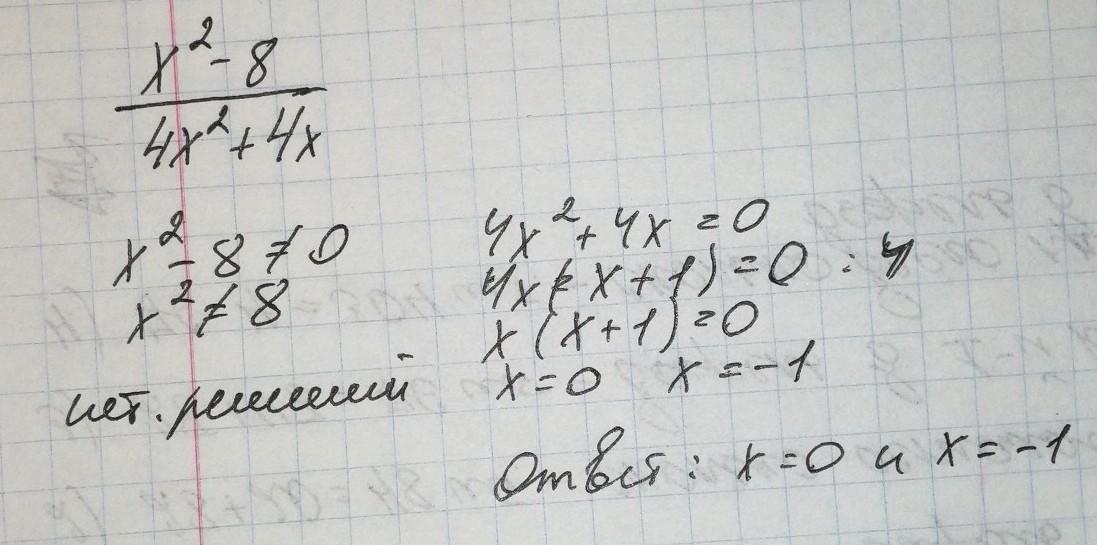 x² - 8
4x² + 4x
x² - 8 ≠ 0
x² ≠ 8
нет. решений
4x² + 4x = 0
4x(x + 1) = 0 : 4
x(x + 1) = 0
x = 0 x = -1
Ответ: x = 0 и x = -1